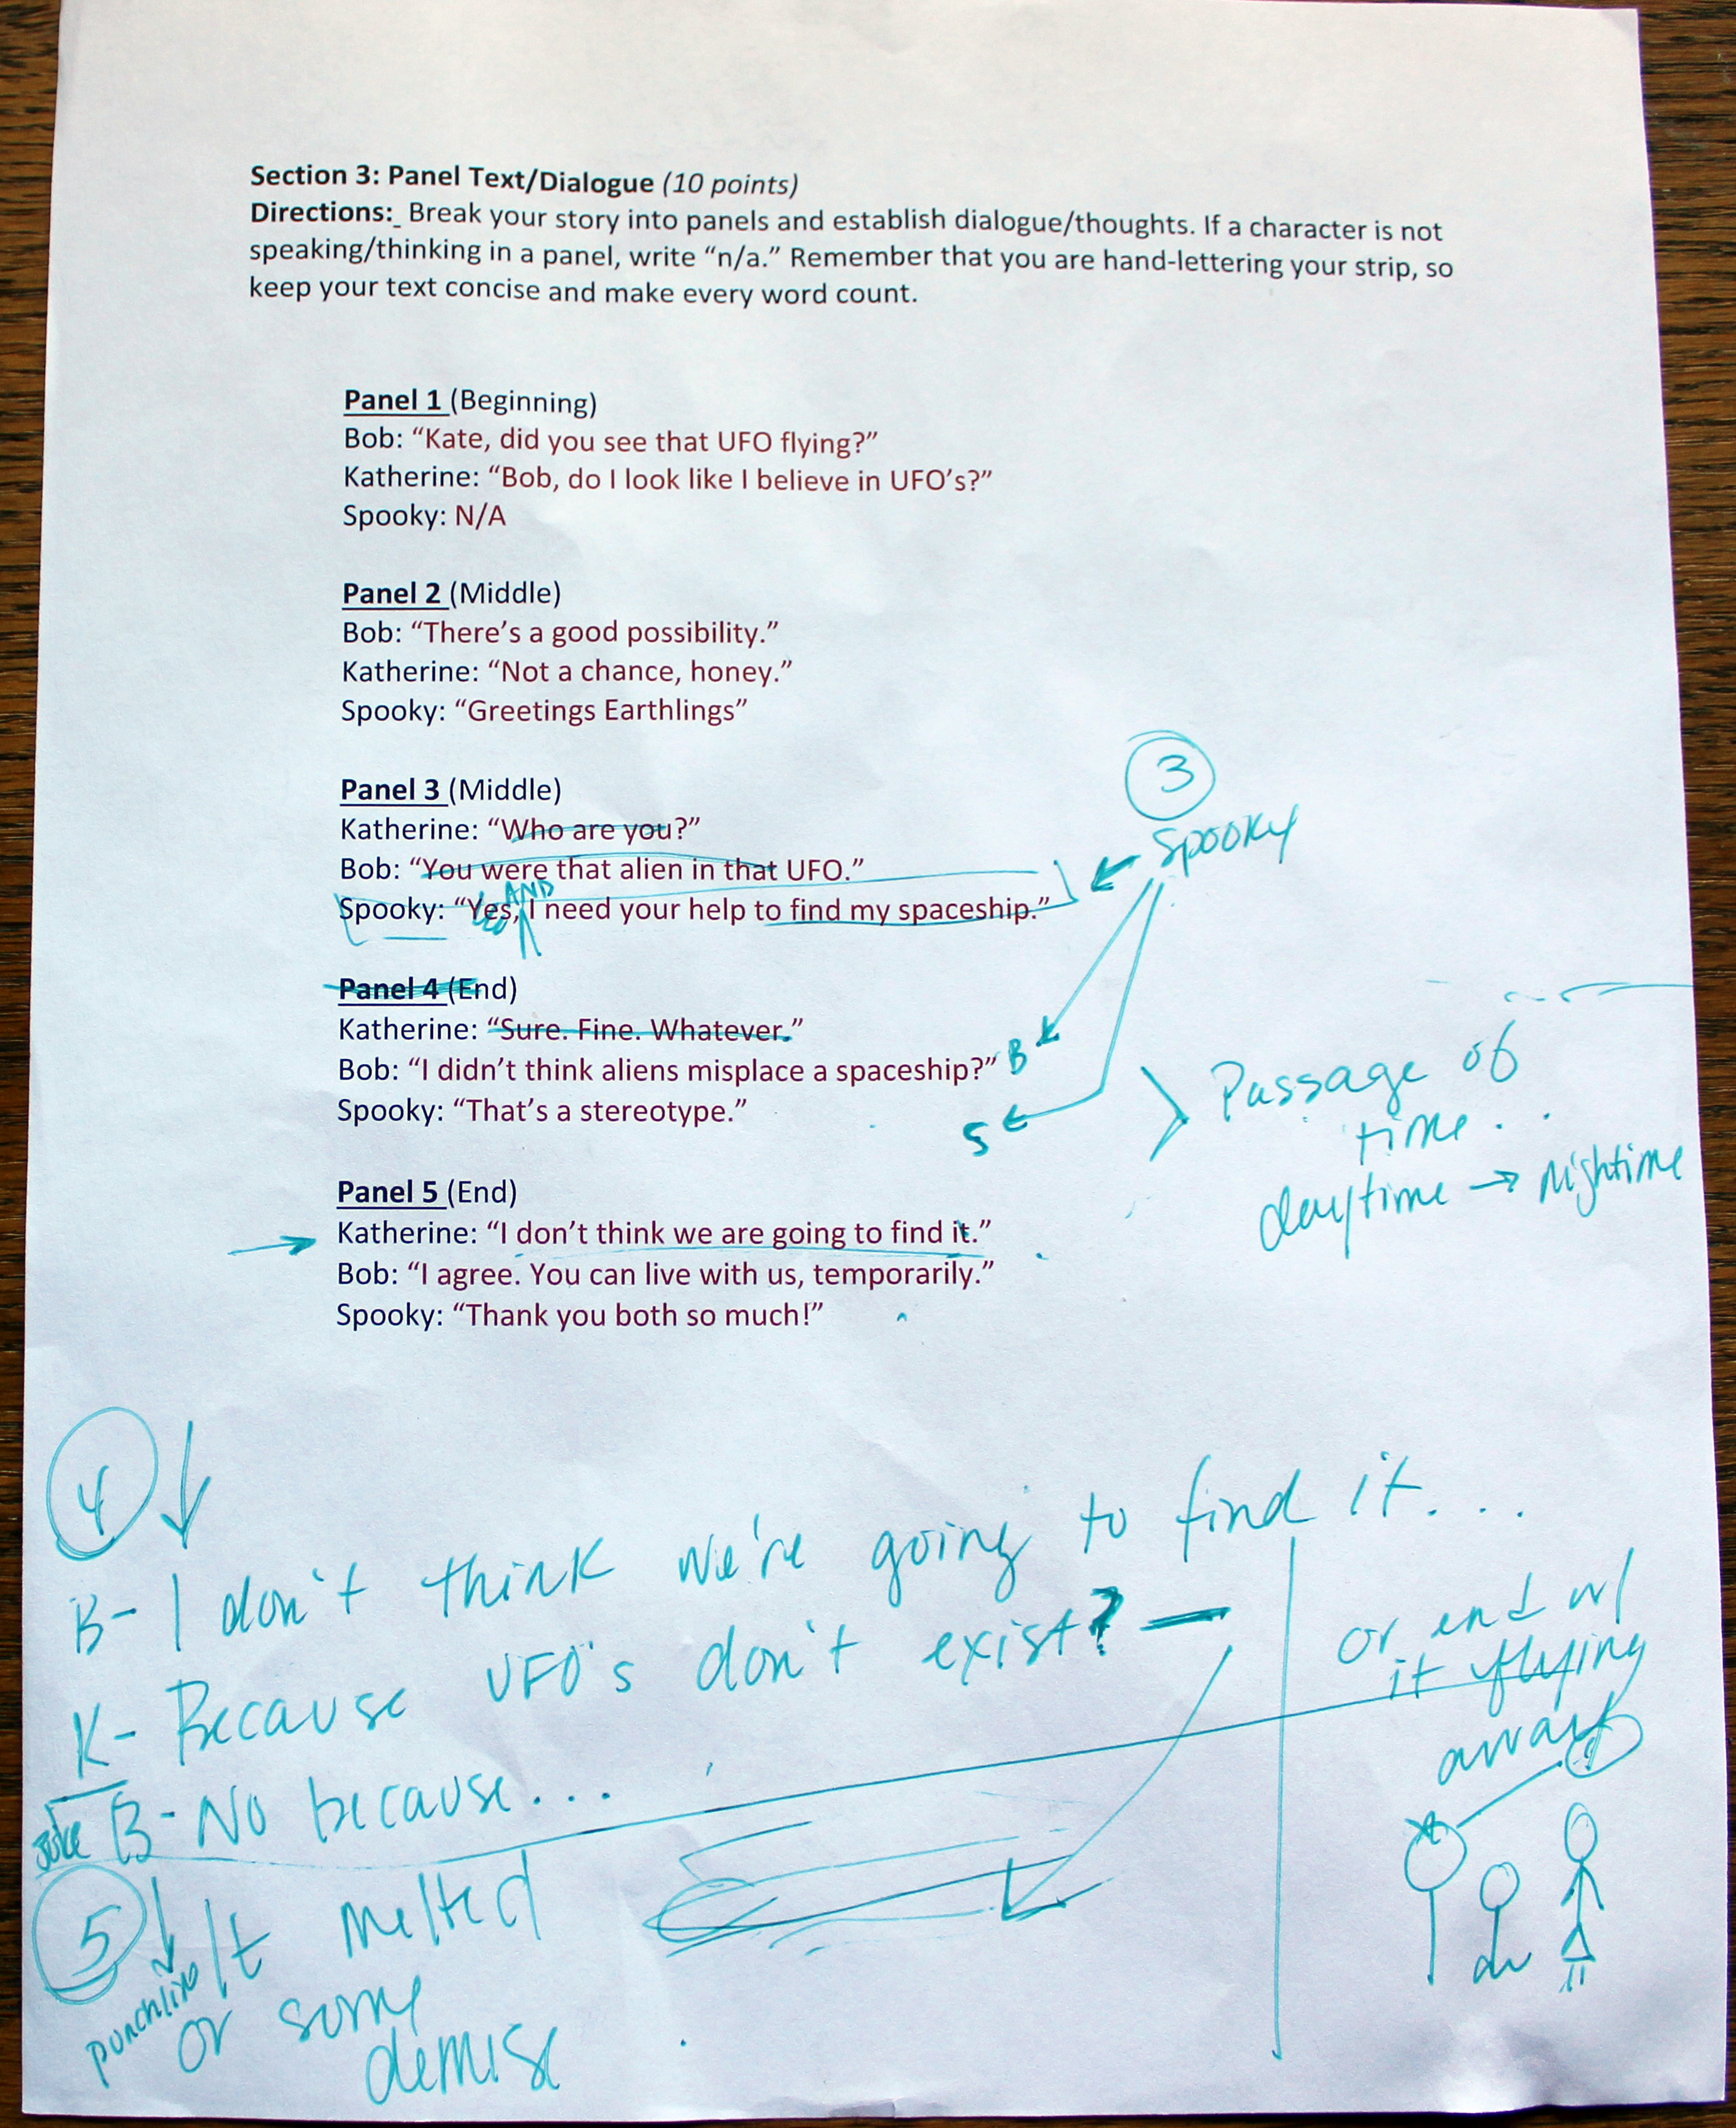 Section 3: Panel Text/Dialogue (10 points)
Directions: Break your story into panels and establish dialogue/thoughts. If a character is not
speaking/thinking in a panel, write “n/a.” Remember that you are hand-lettering your strip, so
keep your text concise and make every word count.
Panel 1 (Beginning)
Bob: “Kate, did you see that UFO flying?”
Katherine: “Bob, do I look like I believe in UFO’s?”
Spooky: N/A
Panel 2 (Middle)
Bob: “There’s a good possibility.”
Katherine: “Not a chance, honey.”
Spooky: “Greetings Earthlings”
Panel 3 (Middle)
Katherine: “Who are you?”
Bob: “You were that alien in that UFO.”
AND
Spooky: “Yes, I need your help to find my spaceship.”
3
Spooky
Panel 4 (End)
Katherine: “Sure. Fine. Whatever.”
Bob: “I didn’t think aliens misplace a spaceship?” B
Spooky: “That’s a stereotype.”
S
Passage of
time..
daytime → nightime
Panel 5 (End)
Katherine: “I don’t think we are going to find it.”
Bob: “I agree. You can live with us, temporarily.”
Spooky: “Thank you both so much!”
4
B- I don't think we're going to find it....
K- Because UFO's don't exist? —
B- No because...
joke
5
punchline
It melted
or some
demise
or end w/
it flying
away